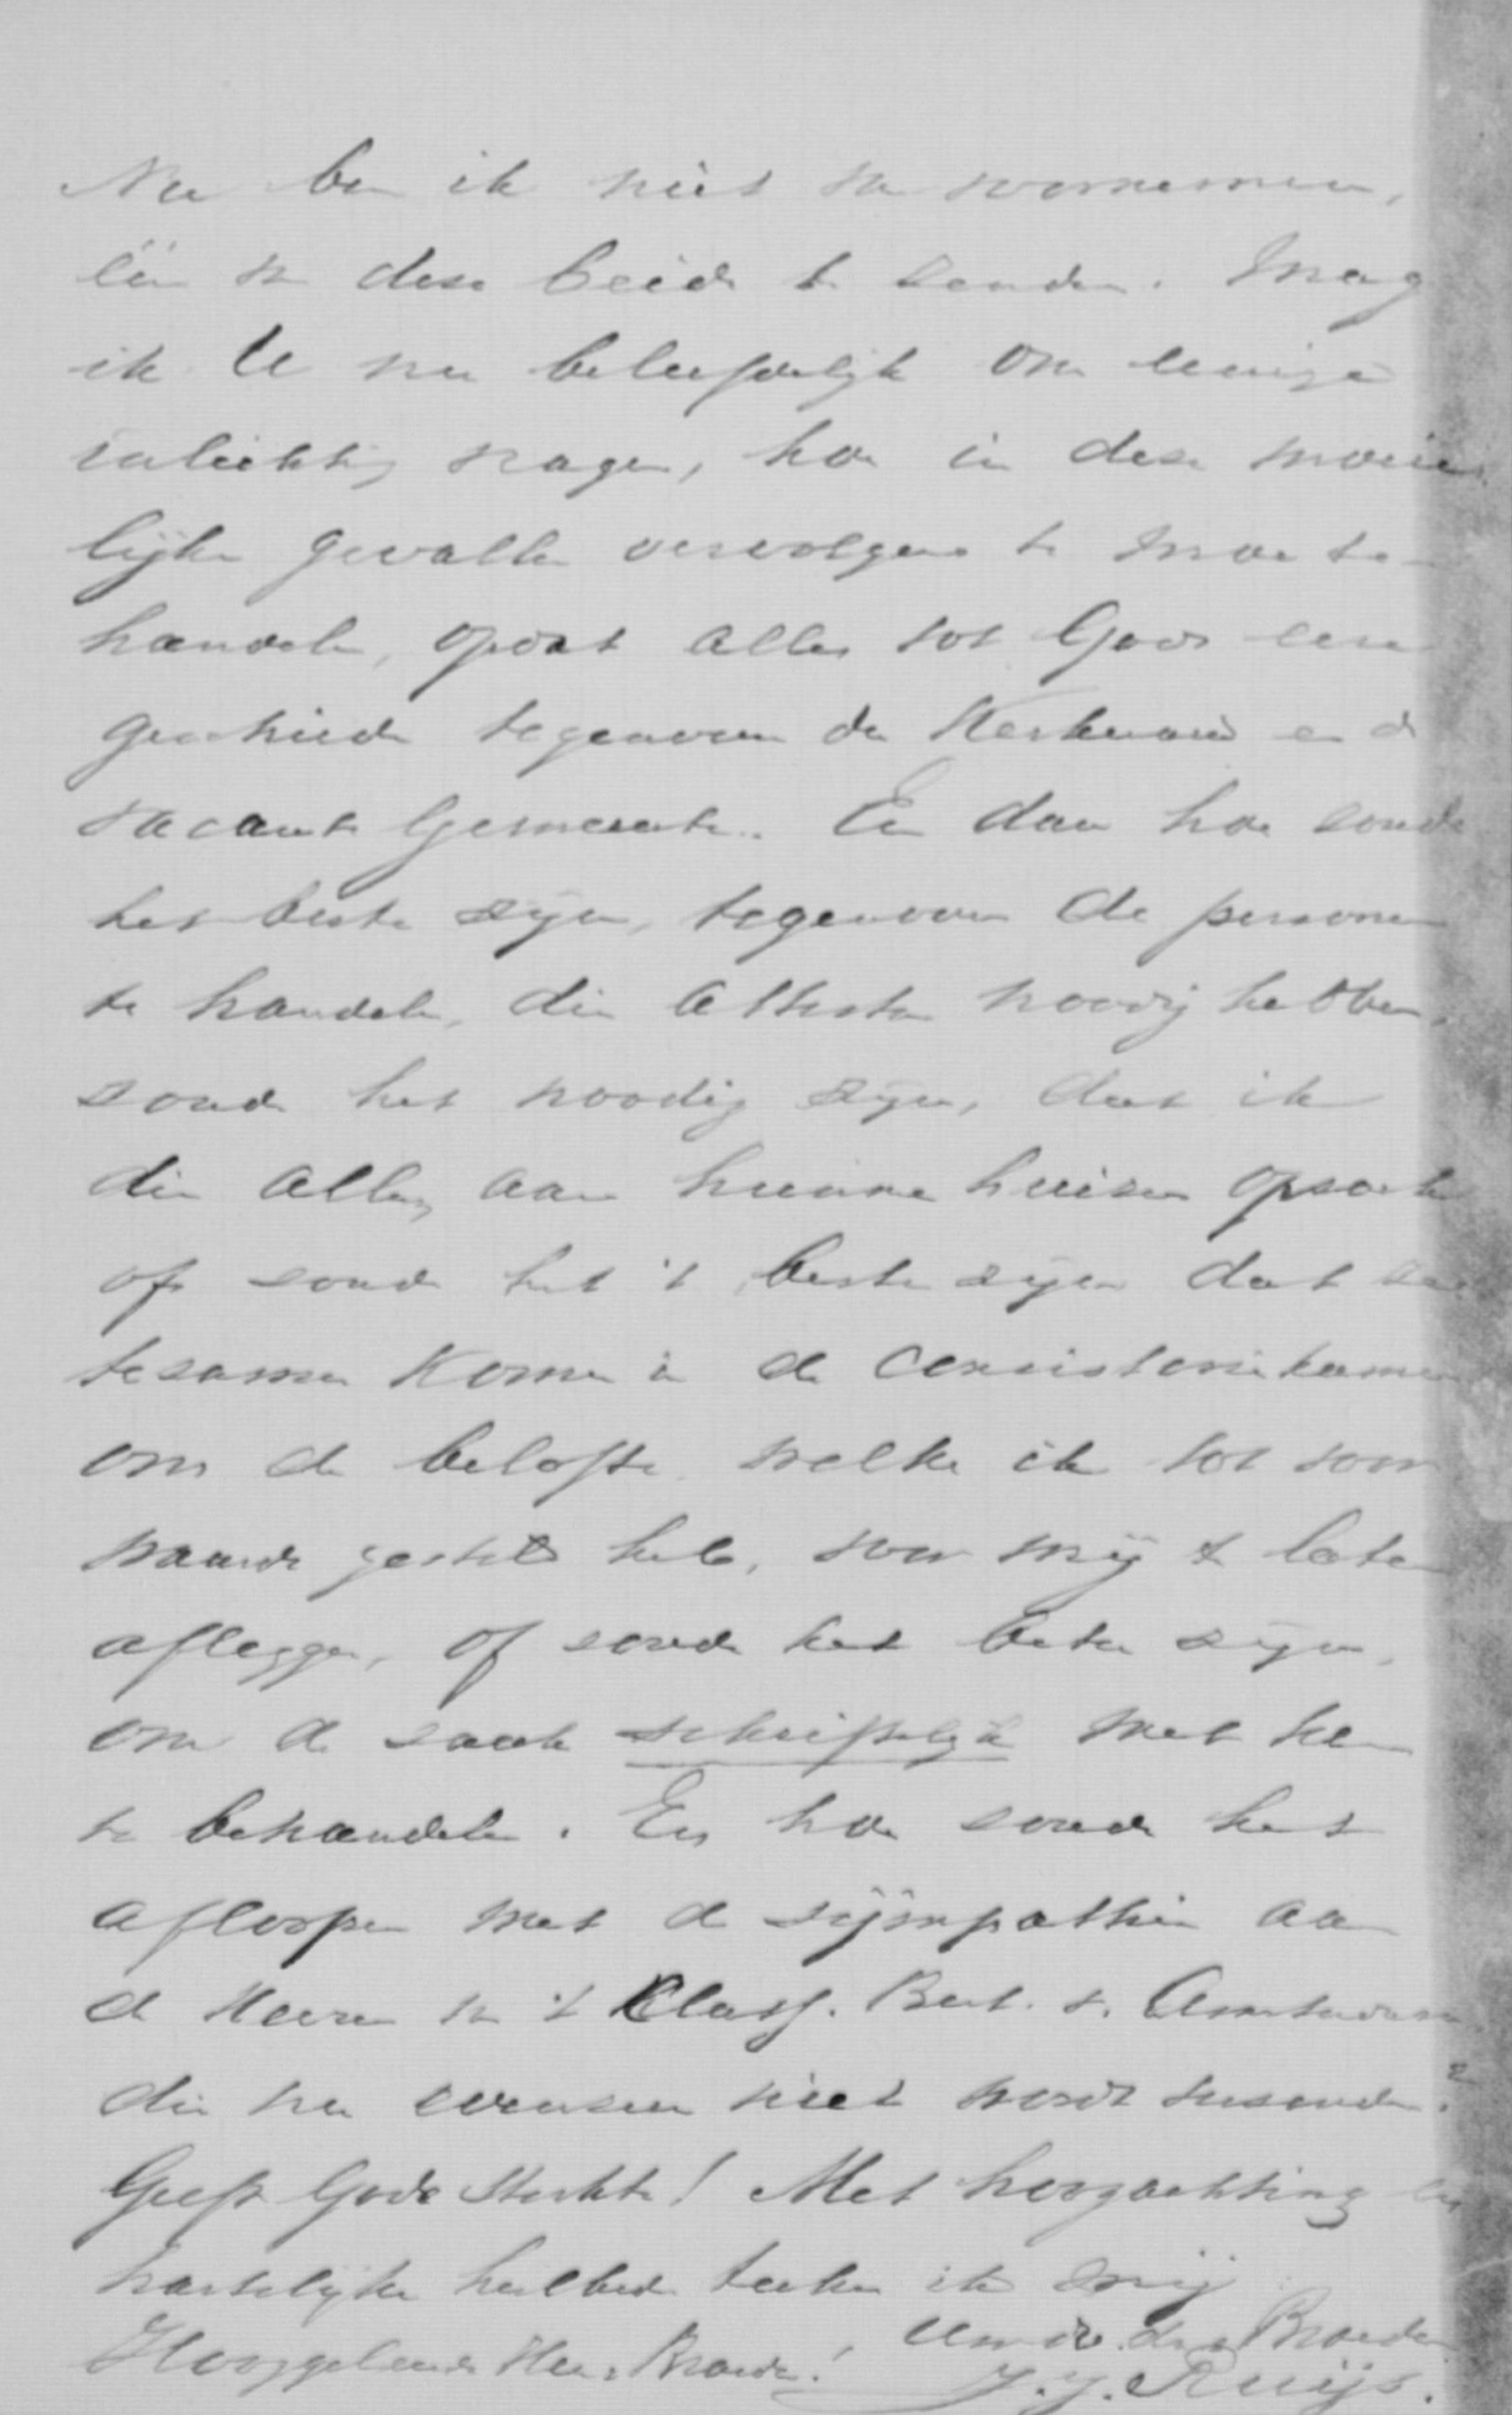 Nu ben ik niet van voornemen,
één van deze beide te zenden. Mag
ik U nu beleefdelijk om eenige
inlichting vragen, hoe in deze moeie-
lijke gevallen vervolgens te moeten
handelen, opdat alles tot Gods eere
geschiede tegenover den Kerkeraad en de
vacante Gemeente. En dan hoe zoude
het beste zijn, tegenover de personen
te handelen, die attesten noodig hebben,
zoude het noodig zijn, dat ik
die allen aan hunne huizen opzoek
of zoude het 't beste zijn dat ze
tezamen komen in de Consistoriekamer
om de belofte welke ik tot voor
waarde gesteld heb, voor mij te laten
afleggen, of zoude het beter zijn,
om de zaak schriftelijk met hen
te behandelen. En hoe zoude het
afloopen met de sÿmpathie aan
de Heeren van 't Klass. Best. v. Amsterdam
die nu evenzeer niet wordt verzonden?
Geeft Gods Sterkte! Met hoogachting en
hartelijke heilbede teeken ik mij
Uw dw. dr. Broeder
Hooggeleerde Heer Broeder! J. J. Ruijs.